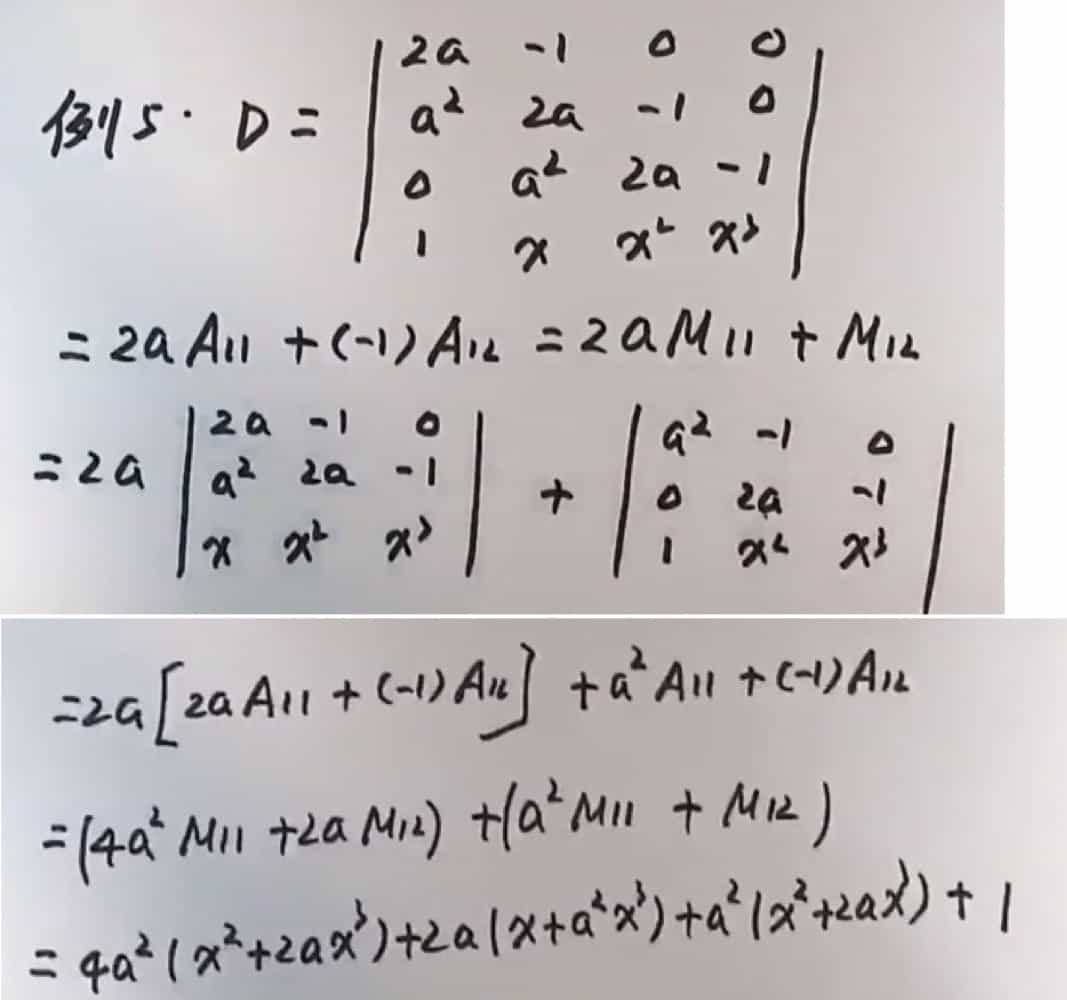 2a -1 0 0
例5. D = a² 2a -1 0
0 a² 2a -1
1 x x² x³
= 2a A11 + (-1) A12 = 2a M11 + M12
2a -1 0 a² -1 0
= 2a a² 2a -1 + 0 2a -1
x x² x³ 1 x² x³
= 2a [2a A11 + (-1) A12] + a² A11 + (-1) A12
= (4a² M11 + 2a M12) + (a² M11 + M12)
= 4a² (x² + 2ax³) + 2a (x + a²x³) + a² (x² + 2ax³) + 1